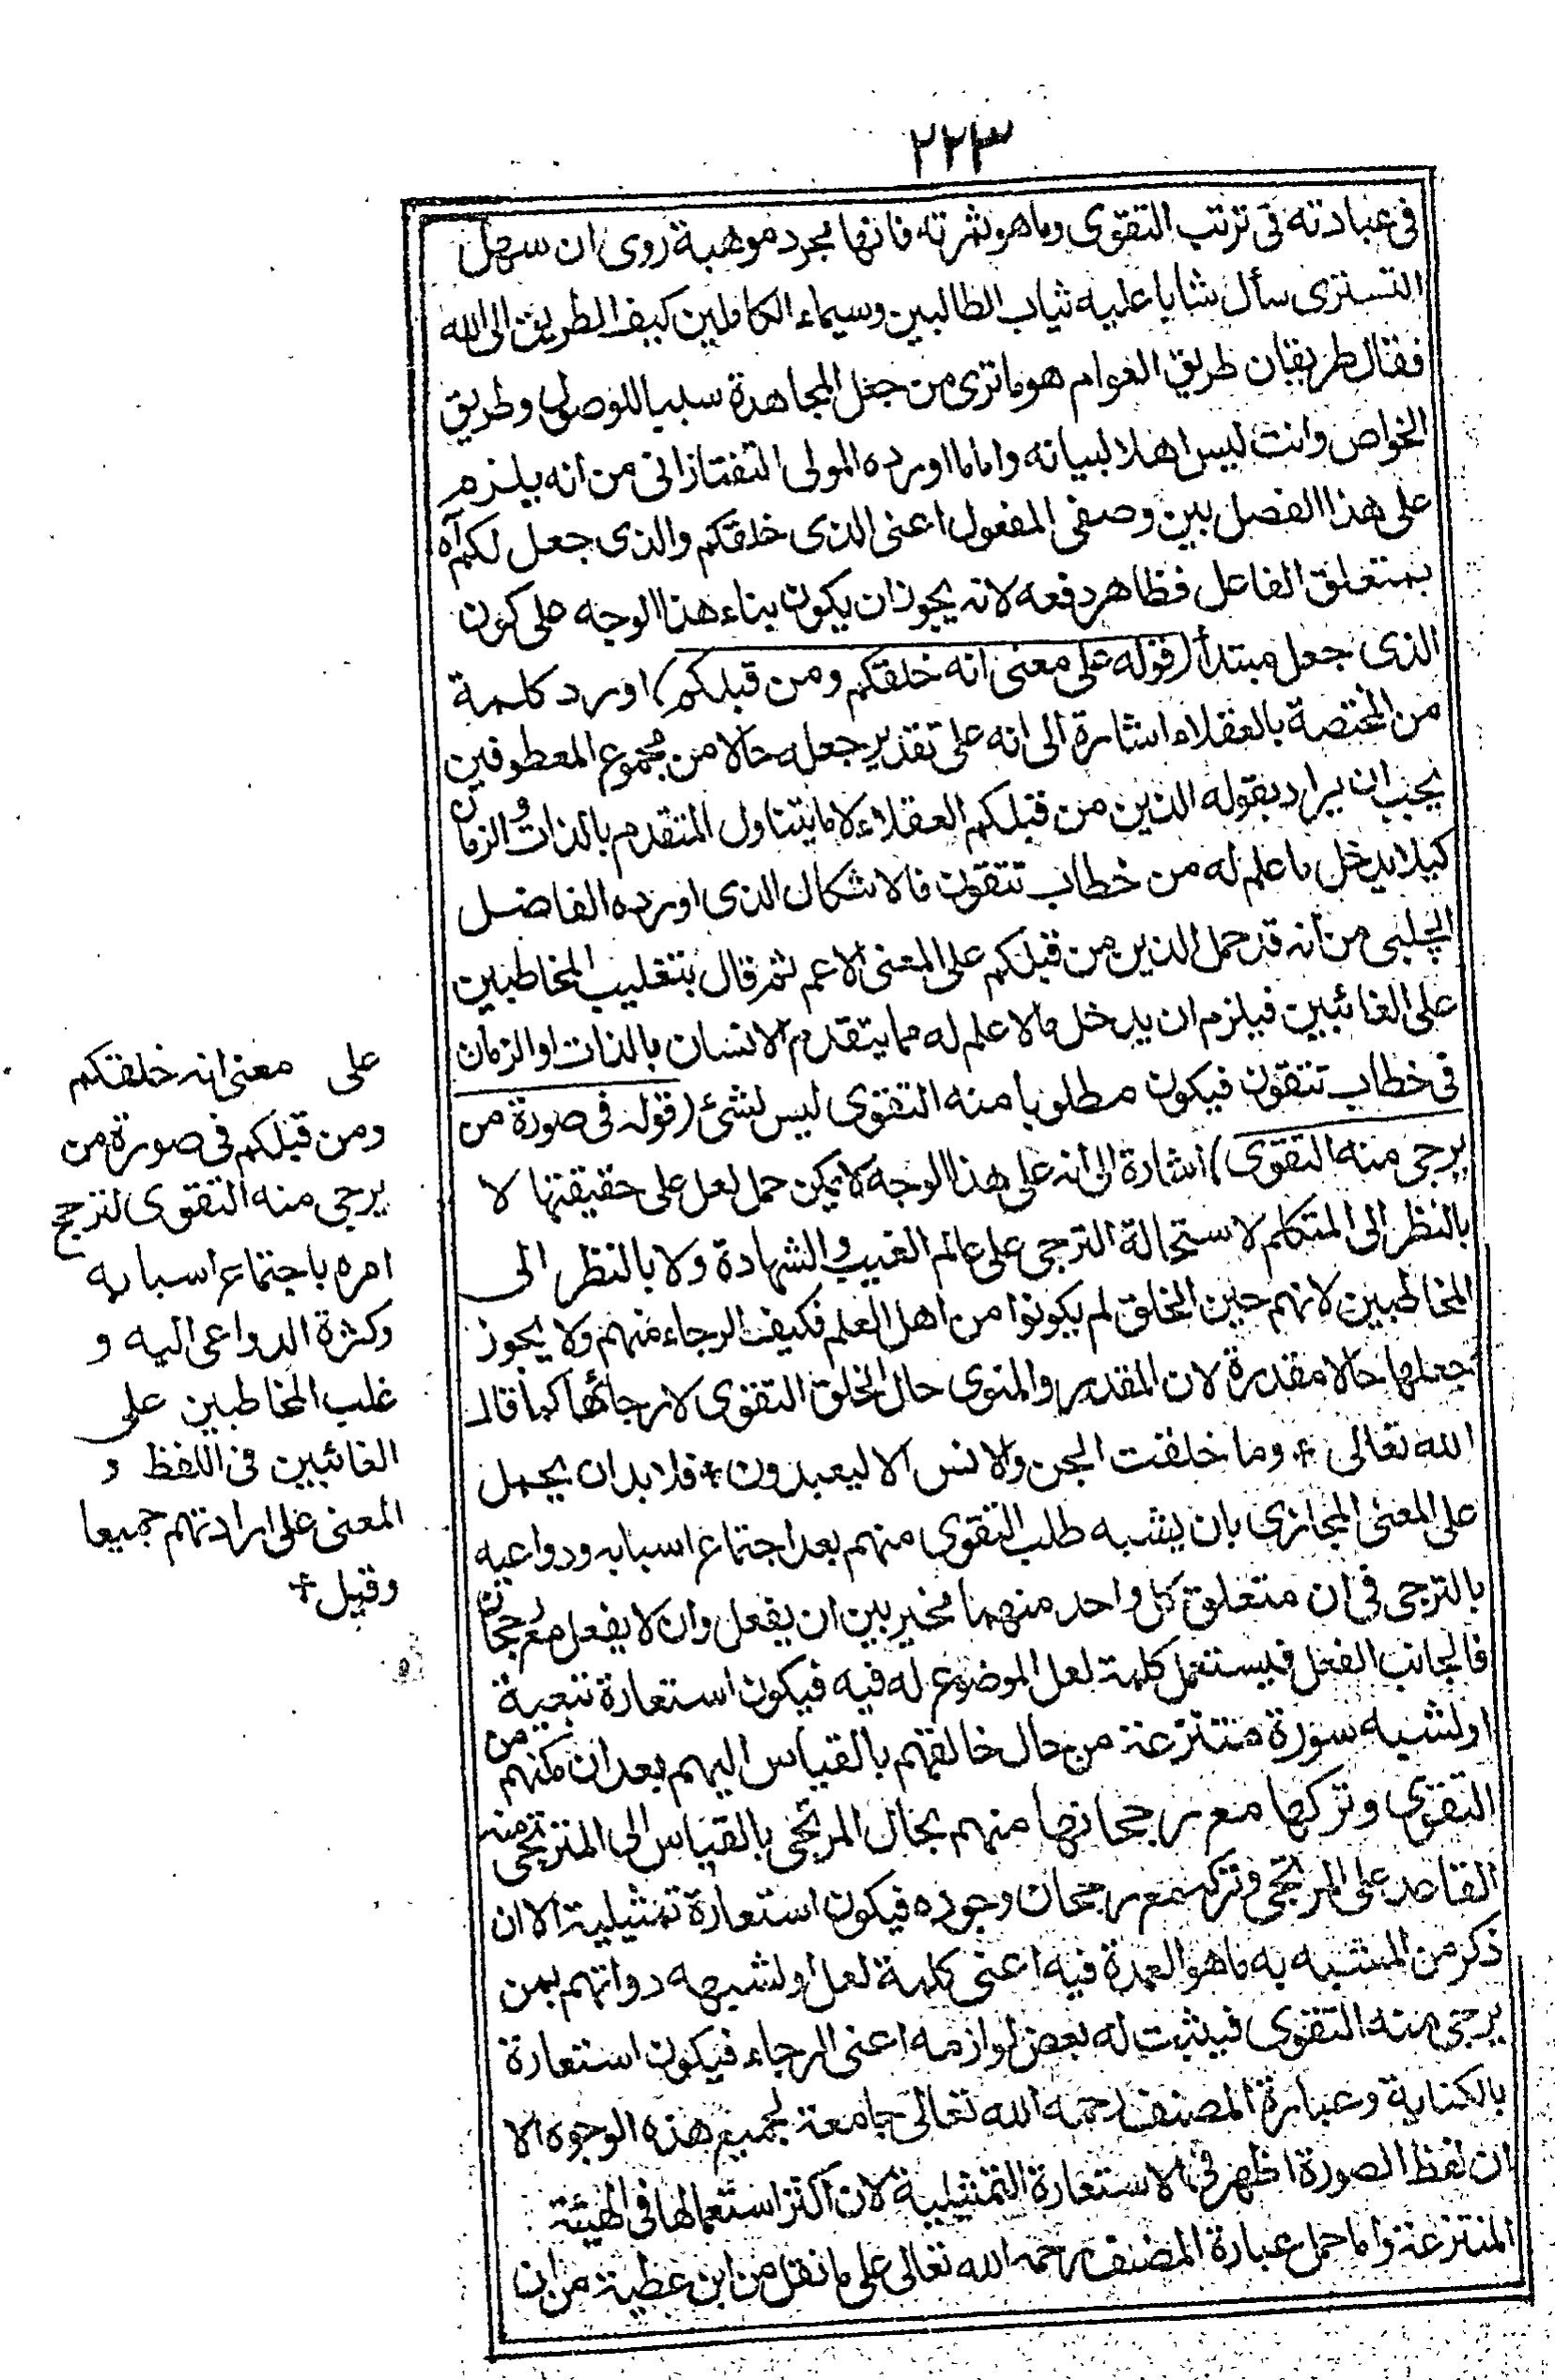 ٢٢٣
في عبادته في ترتب التقوى وما هو ثمرته فانها مجرد موهبة روى ان سهل
التستري سأل شابا عليه ثياب الطالبين وسيماء الكاملين كيف الطريق الى الله
فقال طريقان طريق العوام هو ما ترى من جعل المجاهدة سببا للوصول وطريق
الخواص وانت ليس اهلا لبيانه واما ما اورده المولى التفتازانى من انه يلزم
على هذا الفصل بين وصفى المفعول اعنى الذى خلقكم والذى جعل لكم آه
بمتعلق الفاعل فظاهر دفعه لانه يجوز ان يكون بناء هذا الوجه على كون
الذى جعل مبتدأ (قوله على معنى انه خلقكم ومن قبلكم) اورد كلمة
من المختصة بالعقلاء اشارة الى انه على تقدير جعله حالا من مجموع المعطوفين
يجب ان يراد بقوله الذين من قبلكم العقلاء لا ما يتناول المتقدم بالذات والزمان
كيلا يدخل ما علم له من خطاب تتقون فالاشكال الذى اورده الفاضل
الچلبى من انه قد حمل الذين من قبلكم على المعنى الاعم ثم قال بتغليب المخاطبين
على الغائبين فيلزم ان يدخل ما لا علم له مما يتقدم الانسان بالذات او الزمان
فى خطاب تتقون فيكون مطلوبا منه التقوى ليس لشئ (قوله فى صورة من
يرجى منه التقوى) اشارة الى انه على هذا الوجه لا يمكن حمل لعل على حقيقتها لا
بالنظر الى المتكلم لاستحالة الترجى على عالم الغيب والشهادة ولا بالنظر الى
المخاطبين لانهم حين الخلق لم يكونوا من اهل العلم فكيف الرجاء منهم ولا يجوز
جعلها حالا مقدرة لان المقدر والمنوى حال الخلق التقوى لا رجائها كما قال
الله تعالى * وما خلقت الجن والانس الا ليعبدون * فلا بد ان يحمل
على المعنى المجازى بان يشبه طلب التقوى منهم بعد اجتماع اسبابه ودواعيه
بالترجى فى ان متعلق كل واحد منهما مخير بين ان يفعل وان لا يفعل مع رجحان
فا لجانب الفعل فيستعمل كلمة لعل الموضوع له فيه فيكون استعارة تبعية
او لشبه سورة منتزعة من حال خالقهم بالقياس اليهم بعد ان مكنهم من
التقوى وتركها مع رجحانها منهم بحال المرتجى بالقياس الى المترجى منه
القاصد على المرتجى وتركه مع رجحان وجوده فيكون استعارة تمثيلية الا ان
ذكر من المشبه به ما هو العمدة فيه اعنى كلمة لعل او لشبهه ذواتهم بمن
يرجى منه التقوى فيثبت له بعض لوازمه اعنى الرجاء فيكون استعارة
بالكناية وعبارة المصنف رحمه الله تعالى جامعة لجميع هذه الوجوه الا
ان لفظ الصورة اظهر فى الاستعارة التمثيلية لان اكثر استعمالها فى الهيئة
المنتزعة واما حمل عبارة المصنف رحمه الله تعالى على ما نقل من ابن عطية من ان
على معنى انه خلقكم
ومن قبلكم فى صورة من
يرجى منه التقوى لترجح
امره باجتماع اسبابه
وكثرة الدواعى اليه و
غلب المخاطبين على
الغائبين فى اللفظ و
المعنى على ارادتهم جميعا
وقيل *